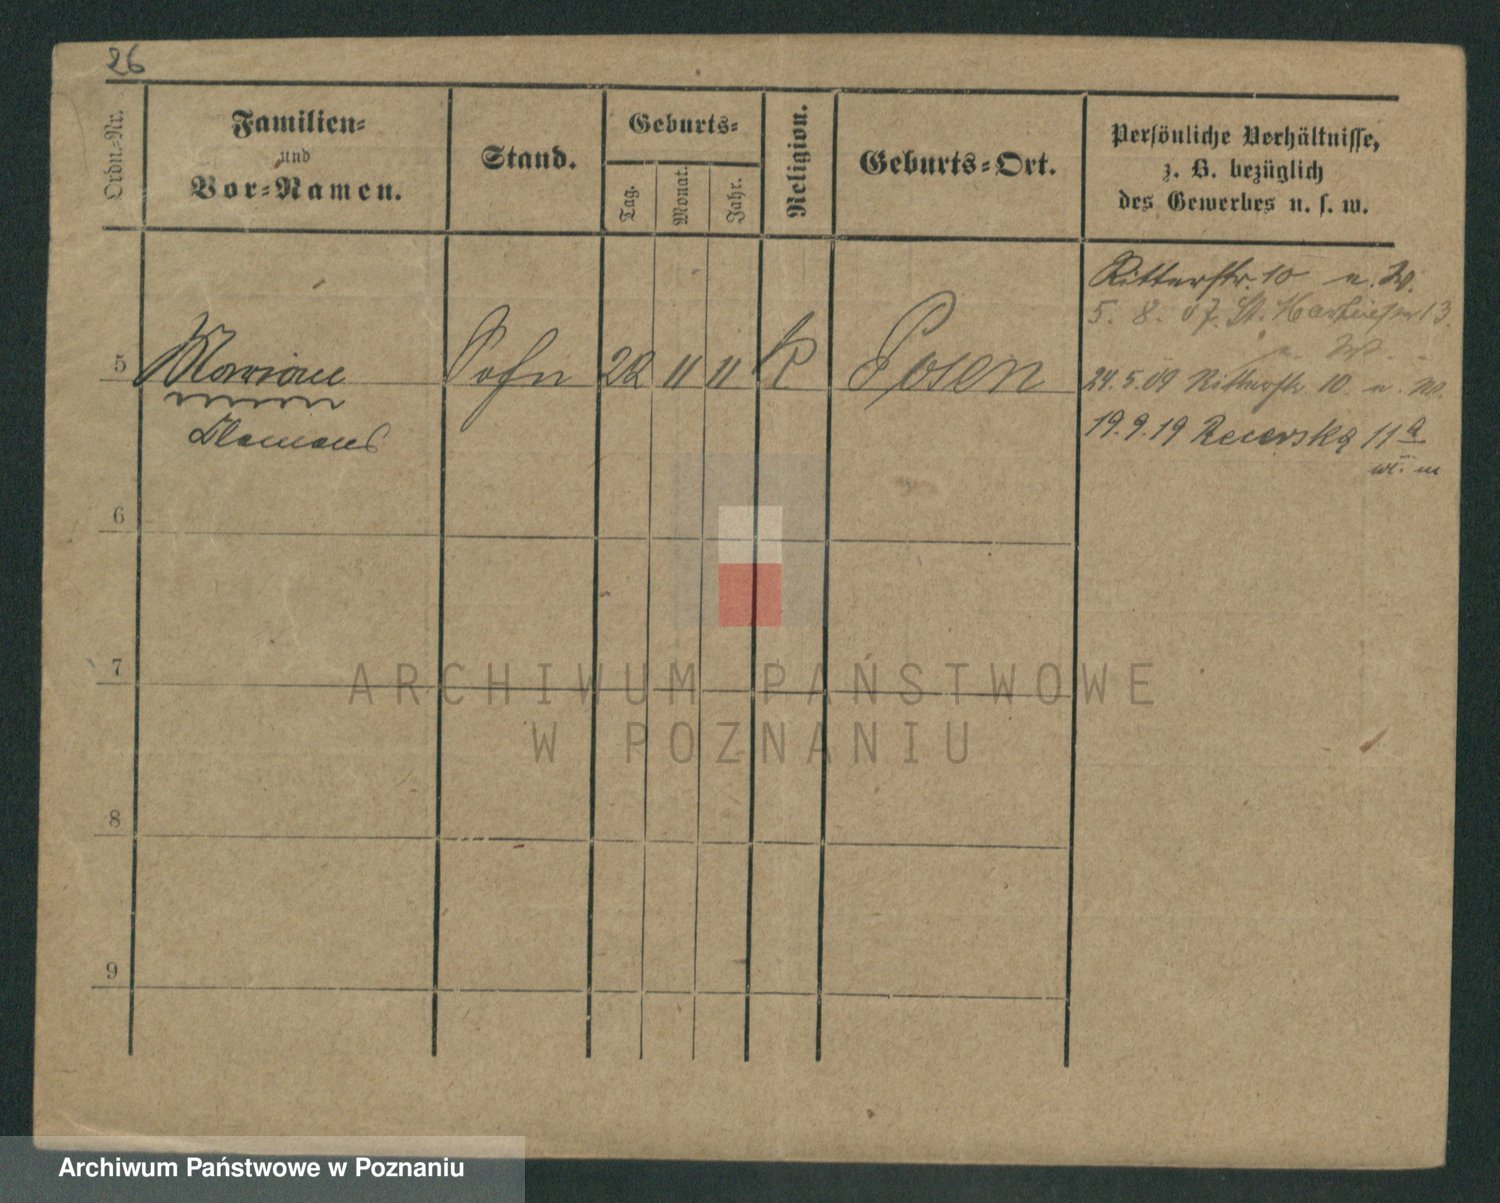 26
Ordn.-Nr.
Familien-
und
Vor-Namen.
Stand.
Geburts-
Tag.
Monat.
Jahr.
Religion.
Geburts-Ort.
Persönliche Verhältnisse,
z. B. bezüglich
des Gewerbes u. s. w.
Ritterstr. 10 u. W.
5. 8. 07. St. Martinstr 13.
u. W.
5 Marian Sohn 22 11 11 K Posen
24.5.09 Ritterstr. 10. u. W.
Clemens
19.9.19 Rycerska 11a
w. m
6
7
8
9
ARCHIWUM PAŃSTWOWE
W POZNANIU
Archiwum Państwowe w Poznaniu